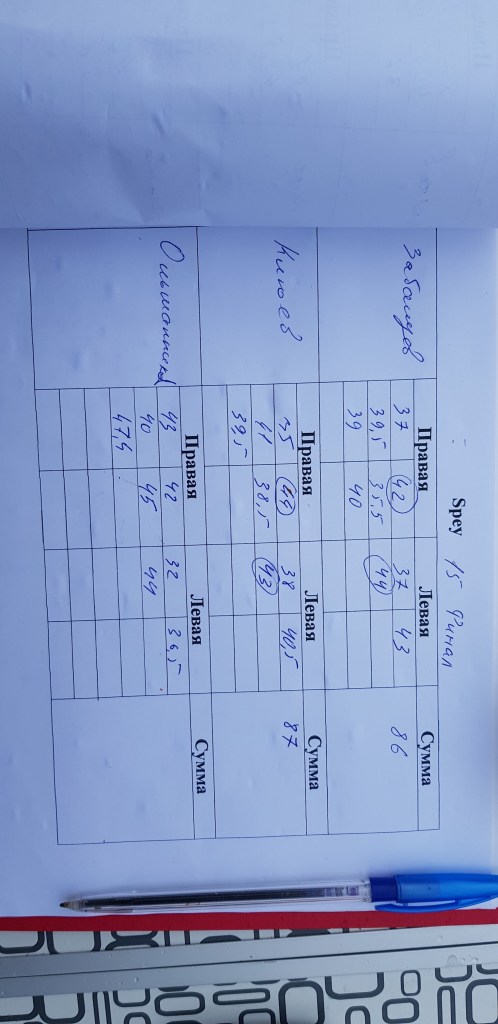 Spey 15 Финал
Правая Левая Сумма
Забалуев 37 42 37 43 86
39,5 35,5 44
39 40
Правая Левая Сумма
Клюев 35 44 38 40,5 87
41 38,5 43
39,5
Правая Левая Сумма
43 42 32 36,5
40 45 44
47,4